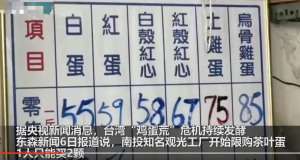 項目
白蛋
紅蛋
白殼紅心
紅殼紅心
土雞蛋
烏骨雞蛋
零
55 59 58 67 75 85
据央视新闻消息，台湾“鸡蛋荒”危机持续发酵
东森新闻6日报道说，南投知名观光工厂开始限购茶叶蛋
1人只能买2颗